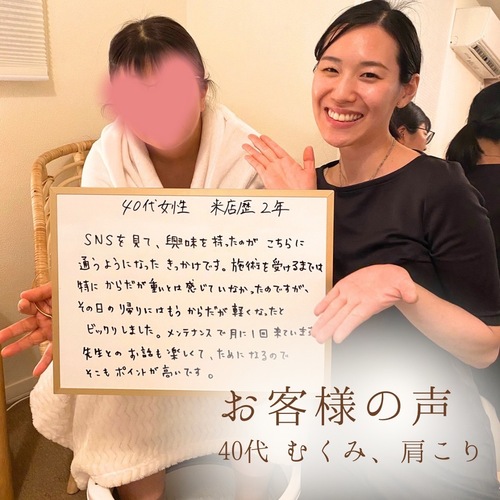 40代女性 来店歴2年
SNSを見て、興味を持ったのがこちらに
通うようになったきっかけです。施術を受けるまでは
特にからだが重いとは感じていなかったのですが、
その日の帰りにはもうからだが軽くなったと
ビックリしました。メンテナンスで月に1回来ています
先生とのお話も楽しくて、ためになるので
そこもポイントが高いです。
お客様の声
40代 むくみ、肩こり